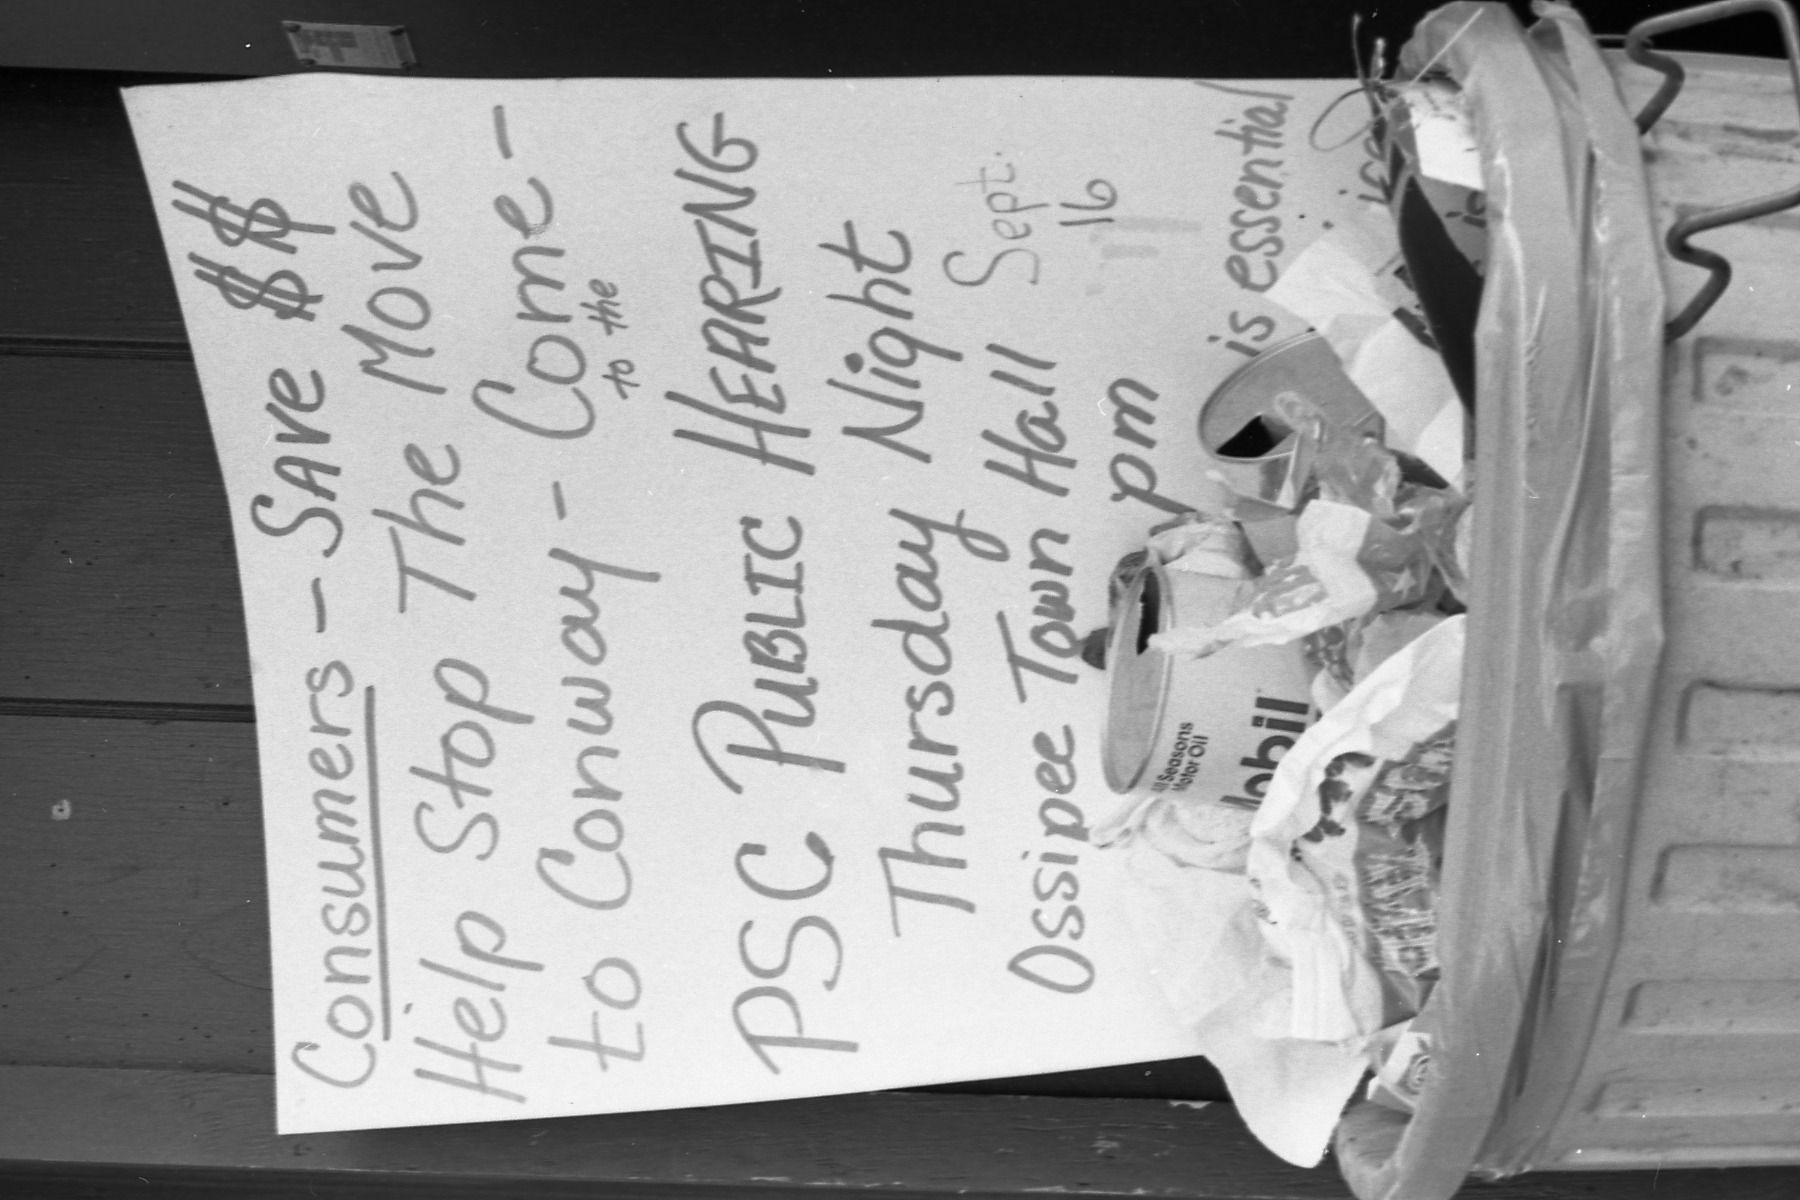 Consumers - SAVE $$
Help Stop The Move
to Conway - Come -
to the
PSC PUBLIC HEARING
Thursday Night
Ossipee Town Hall Sept. 16
pm
is essential
All Seasons
Motor Oil
Mobil